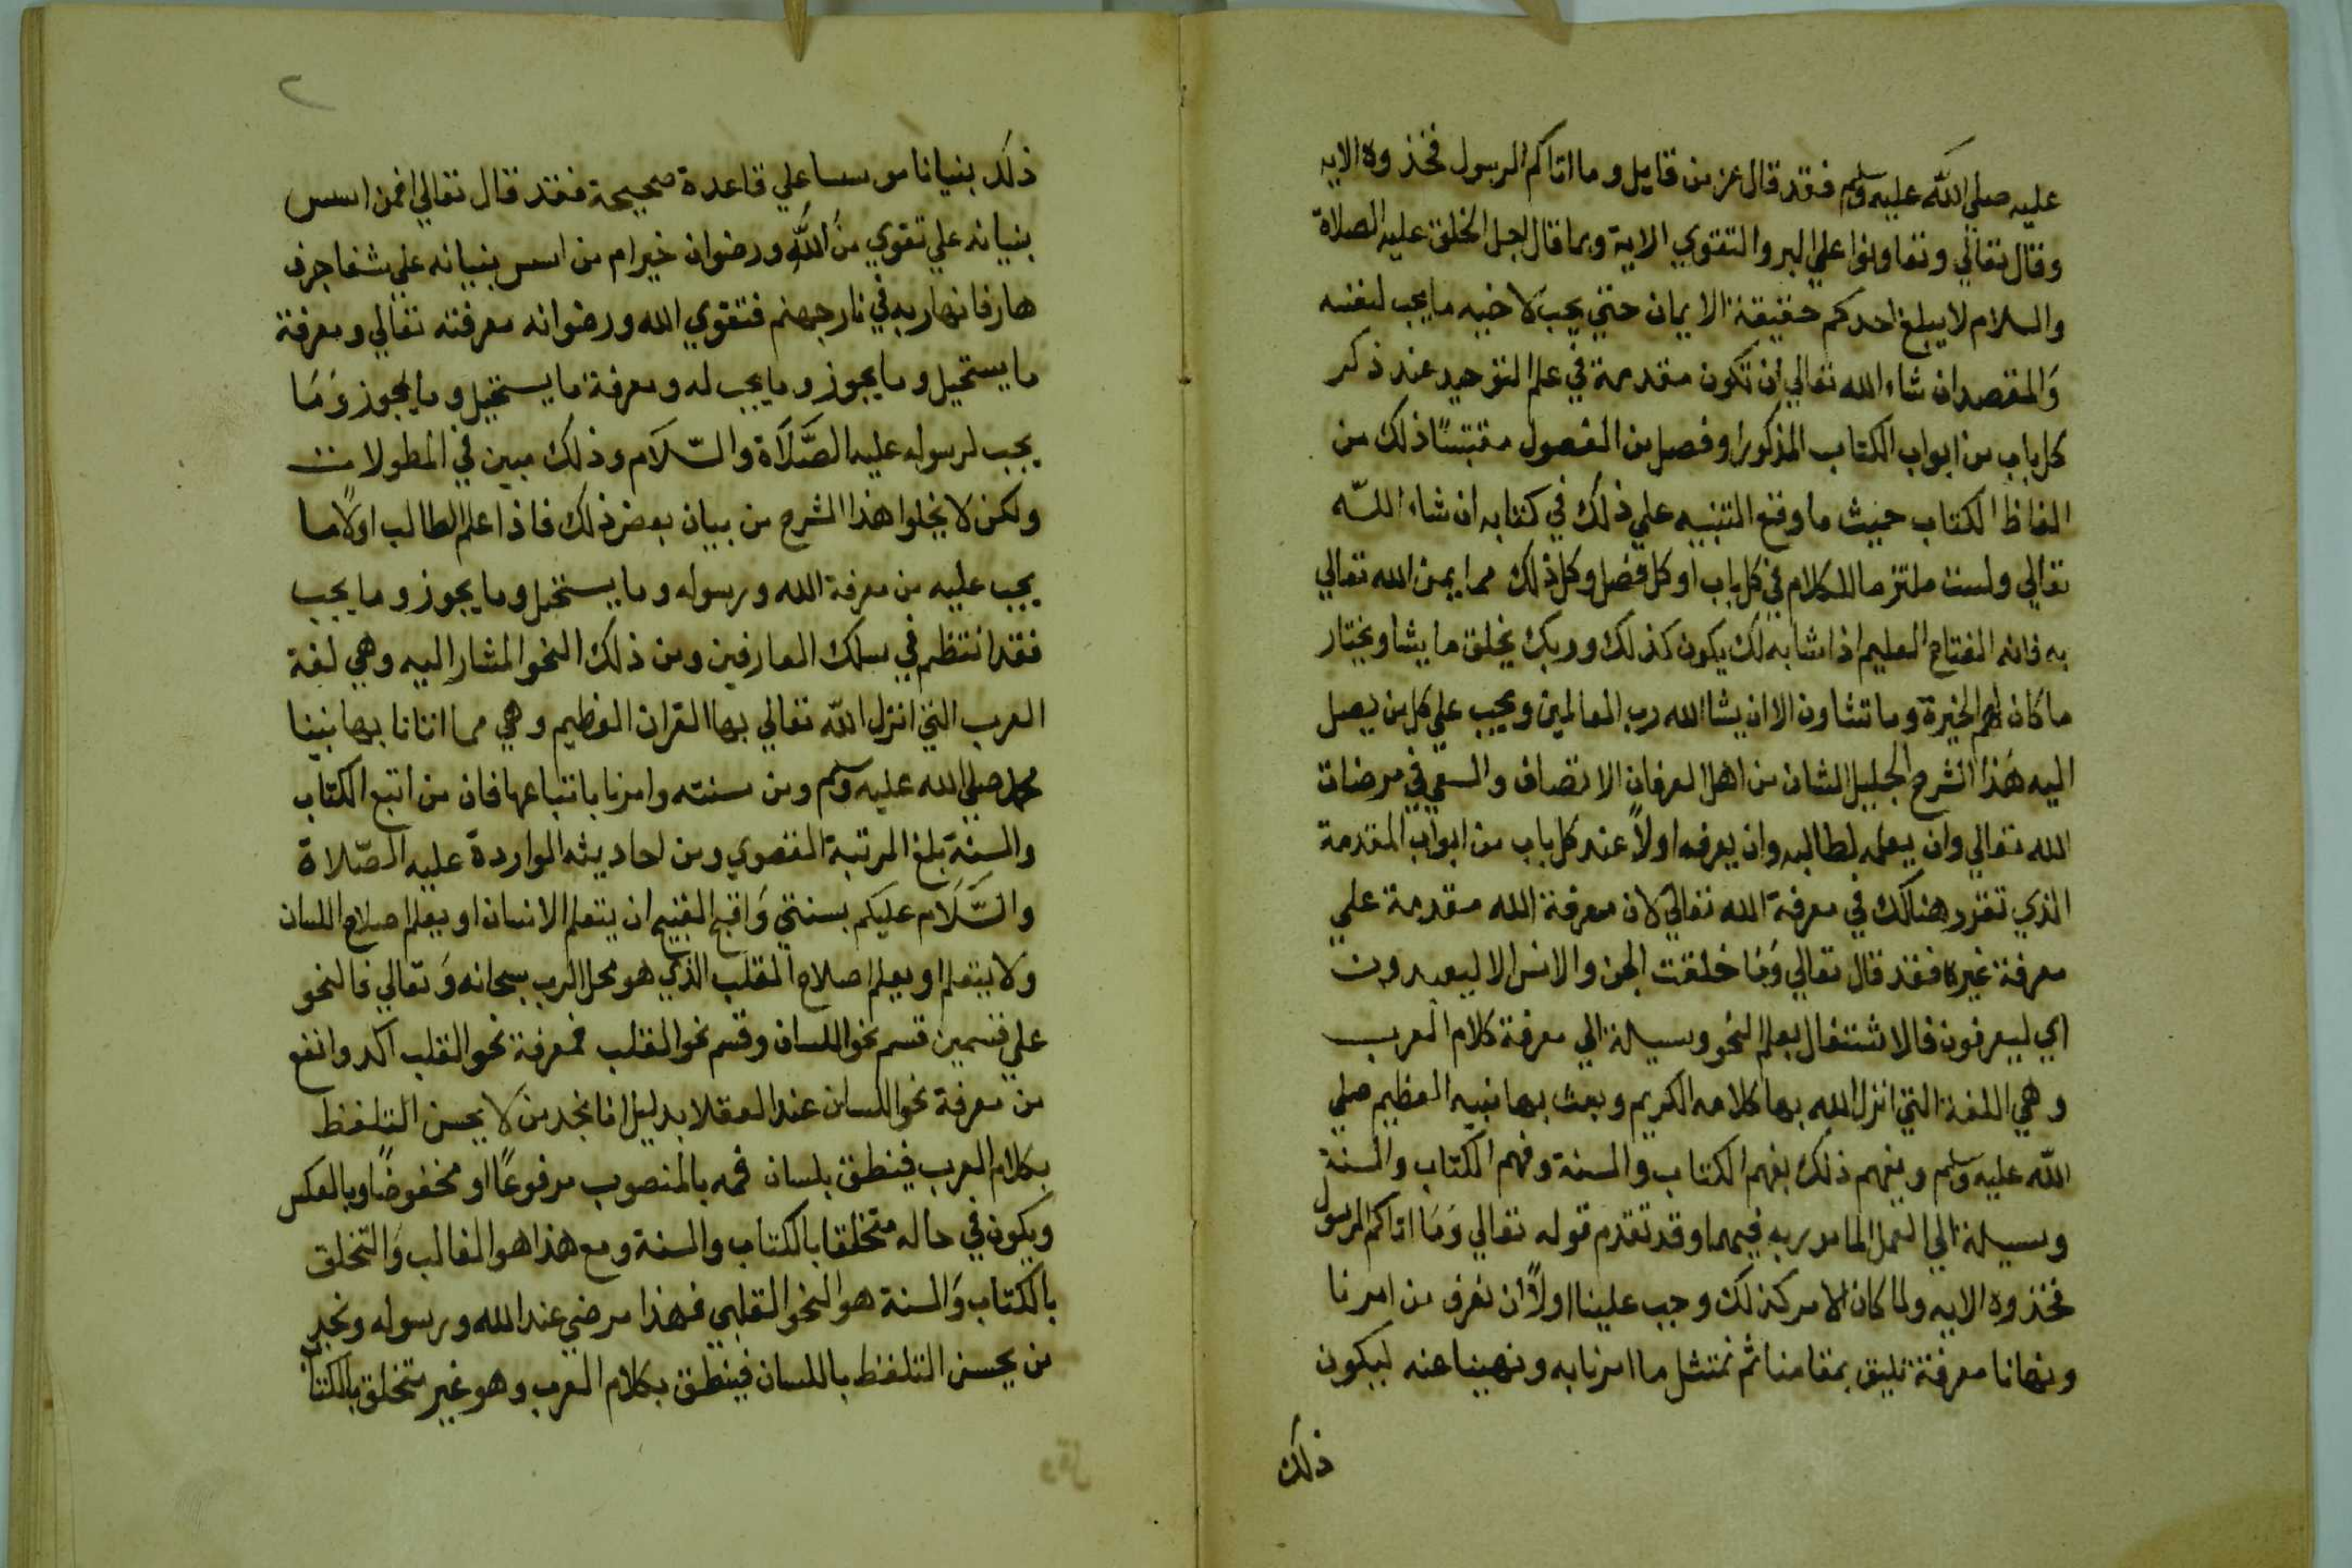 عليه صلى الله عليه وسلم فقد قال عز من قايل وما اتاكم الرسول فخذوه الايه
وقال تعالي وتعاونوا علي البر والتقوي الاية وبما قال اجل الخلق عليه الصلاة
والسلام لا يبلغ احدكم حقيقة الايمان حتي يحب لاخيه ما يحب لنفسه
وَالمقصد ان شاء الله تعالي ان تكون مقدمة في علم التوحيد عند ذكر
كل باب من ابواب الكتاب المذكور او فصل من الفصول مقتبسًا ذلك من
الفاظ الكتاب حيث ما وقع التنبيه علي ذلك في كتابه ان شاء اللّه
تعالي ولست ملتزما للكلام في كل باب او كل فصل وكل ذلك مما يمن الله تعالي
به فانه الفتاح العليم اذا شا به لك يكون كذلك وربك يخلق ما يشا ويختار
ما كان لهم الخيرة وما تشاون الا ان يشا الله رب العالمين ويجب علي كل من يصل
اليه هَذا الشرح الجليل الشان من اهل العرفان الانصاف والسعي في مرضات
الله تعالي وان يعلمه لطالبه وان يعرفه اولاً عند كل باب من ابواب المقدمة
الذي تقرر هنالك في معرفة الله تعالي لان معرفة الله مقدمة علي
معرفة غيره فقد قال تعالي وَمَا خلقت الجن والانس الا ليعبدون
اي ليعرفون فالاشتغال بعلم النحو وسيلة الي معرفة كلام العرب
وهي اللغة التي انزل الله بها كلامه الكريم وبعث بها نبيه العظيم صلي
اللّه عليه وسلم وبفهم ذلك يفهم الكتاب والسنة وفهم الكتاب والسنة
وسيلة الي العمل المامور به فيهما وقد تقدم قوله تعالي وَمَا اتاكم الرسول
فخذوه الايه ولما كان الامر كذلك وجب علينا اولاً ان نعرف من امرنا
ونهانا معرفة تليق بمقامنا ثم نمتثل ما امرنا به ونهينا عنه ليكون
ذلك
٢
ذلك بنيانا موسسا علي قاعدة صحيحة فقد قال تعالي افمن اسس
بنيانه علي تقوي من اللّه ورضوان خير ام من اسس بنيانه علي شفا جرف
هار فانهار به في نار جهنم فتقوي الله ورضوانه معرفته تعالي ومعرفة
ما يستحيل وما يجوز وما يجب له ومعرفة ما يستحيل وما يجوز وَمَا
يجب لرسوله عليه الصَّلَاة والسّلام وذلك مبين في المطولات
ولكن لا يخلوا هذا الشرح من بيان بعض ذلك فاذا علم الطالب اولاً ما
يجب عليه من معرفة الله ورسوله وما يستحيل وما يجوز وما يجب
فقد انتظم في سلك العارفين ومن ذلك النحو المشار اليه وهي لغة
العرب التي انزل اللّه تعالي بها القران العظيم وهي مما اتانا بها نبينا
محمد صلي الله عليه وسلم ومن سنته وامرنا باتباعها فان من اتبع الكتاب
والسنة بلغ المرتبة القصوي ومن احاديثه الواردة عليه الصّلاة
والسَّلَام عليكم بسنتي وَاقبح القبيح ان يتعلم الانسان او يعلم صلاح اللسان
ولا يتعلم او يعلم اصلاح القلب الذي هو محل الرب سبحانه وَتعالي فالنحو
علي قسمين قسم نحو اللسان وقسم نحو القلب فمعرفة نحو القلب اكد وانفع
من معرفة نحو اللسان عند العقلا بدليل انا نجد من لا يحسن التلفظ
بكلام العرب فينطق بلسان فمه بالمنصوب مرفوعًا او مخفوضًا وبالعكس
ويكون في حاله متخلقا بالكتاب والسنة ومع هذا هو الغالب وَالتخلق
بالكتاب وَالسنة هو النحو القلبي فهذا مرضي عند الله ورسوله ونجد
من يحسن التلفظ باللسان فينطق بكلام العرب وهو غير متخلق بالكتا